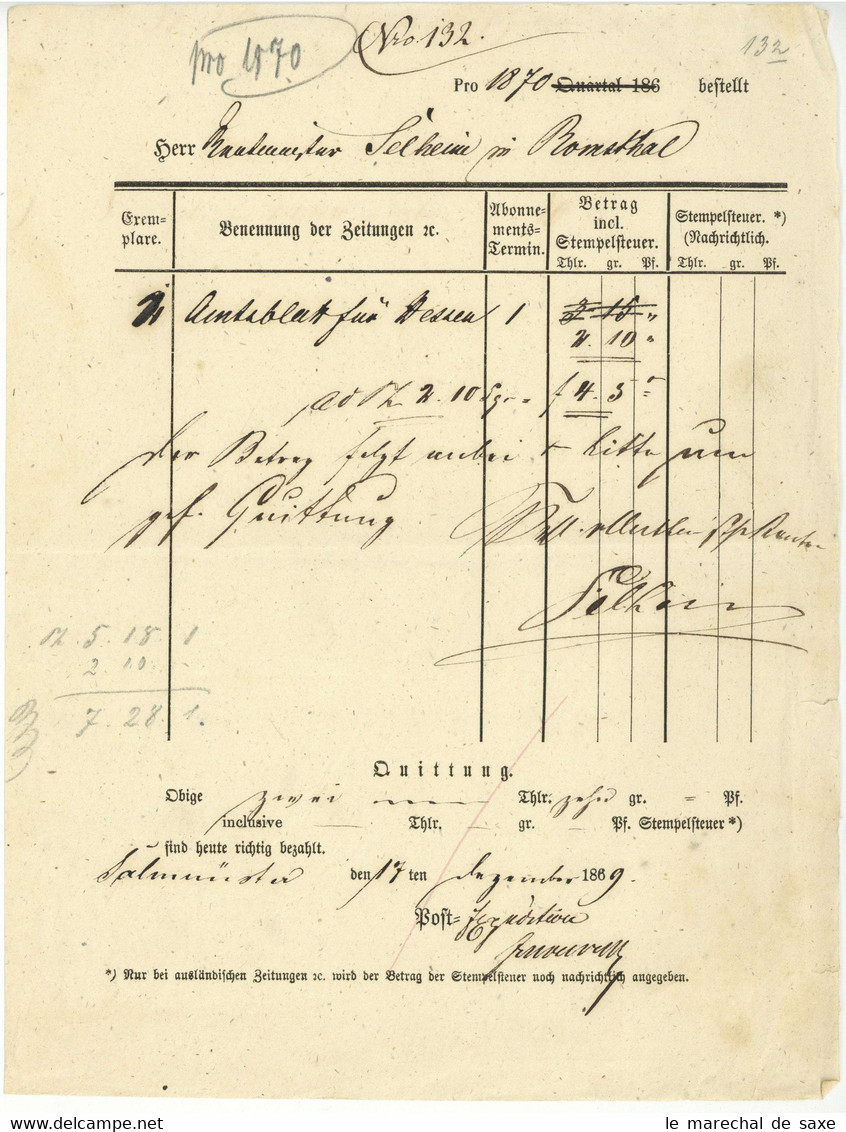 pro 1870
Nro. 132.
132
Pro 1870 Quartal 186 bestellt
Herr Rentmeister Selheim in Romsthal
Exem=
plare.
Benennung der Zeitungen ꝛc.
Abonne=
ments=
Termin.
Betrag
incl.
Stempelsteuer.
Thlr. gr. Pf.
Stempelsteuer. *)
(Nachrichtlich.
Thlr. gr. Pf.
Amtsblatt für Hessen 1 3 15 "
2. 10 "
2. 10 Sgr = f 4. 5
Der Betrag folgt anbei & bitte um
gef. Quittung
Selheim
5. 18 1
2 10 -
7. 28. 1.
Quittung.
Obige zwei Thlr. zehn gr. = Pf.
inclusive — Thlr. — gr. — Pf. Stempelsteuer *)
sind heute richtig bezahlt.
Salmünster den 17 ten Dezember 1869.
Post= Expedition
*) Nur bei ausländischen Zeitungen ꝛc. wird der Betrag der Stempelsteuer noch nachrichtlich angegeben.
le marechal de saxe